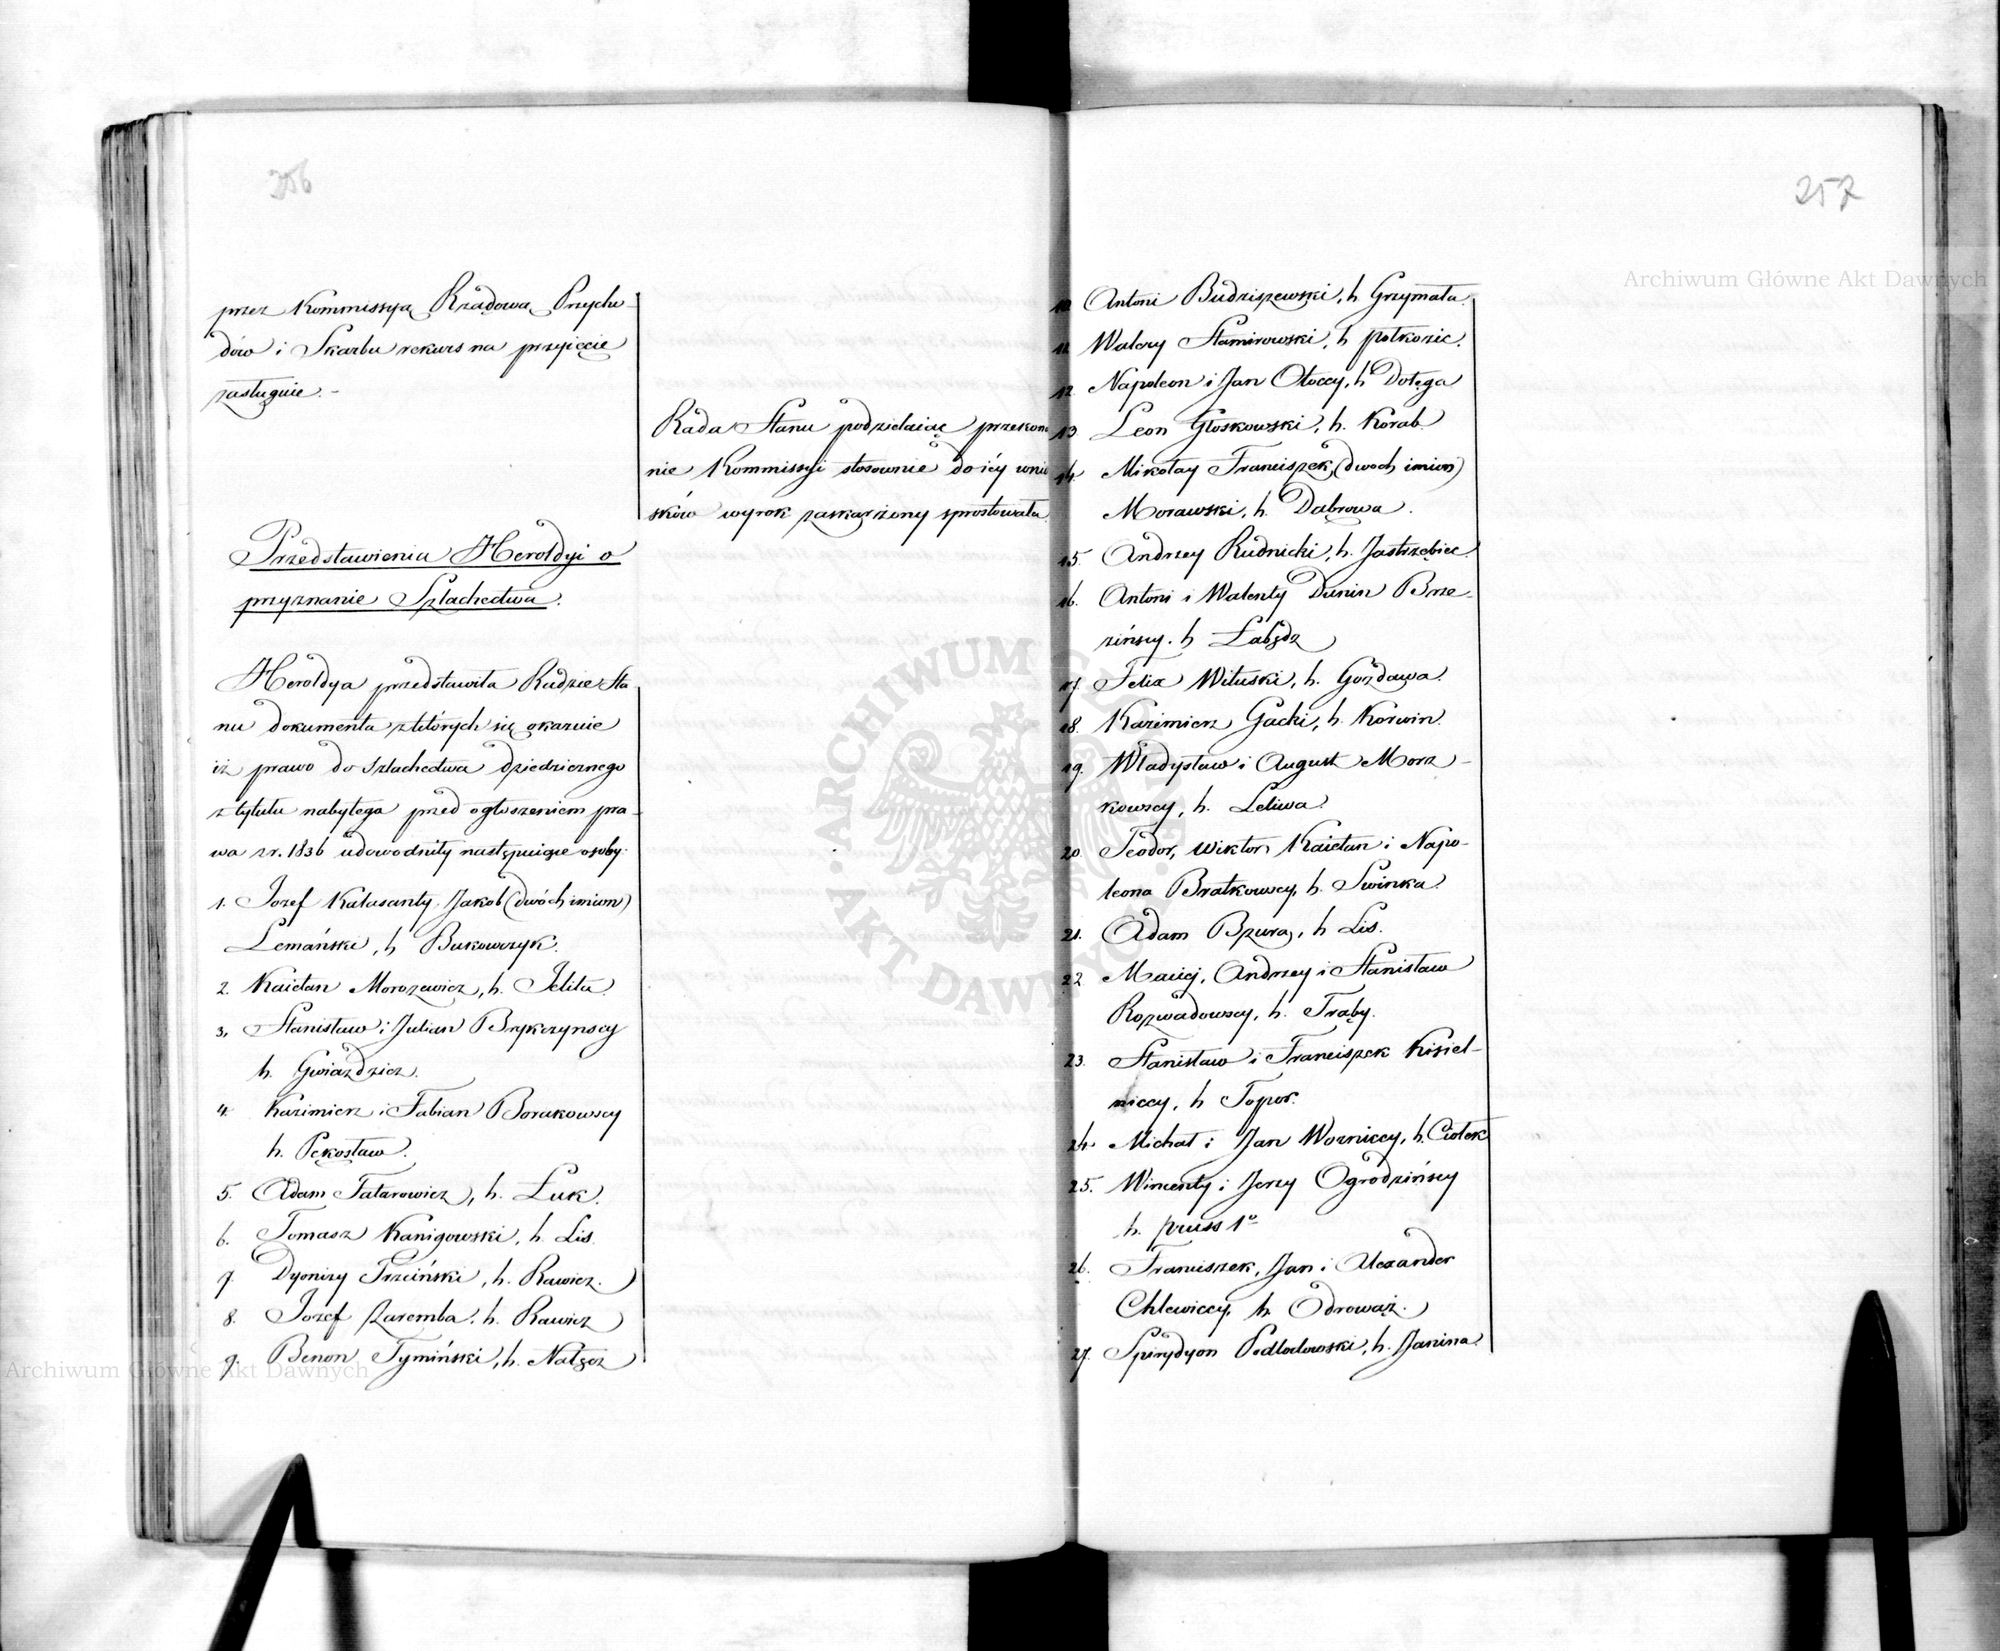 256
przez Kommissyą Rządową Przycho-
dów i Skarbu rekurs na przyięcie
zasługuie. -
Rada Stanu podzielaiąc przekona
nie Kommissyi stosownie do iéy wnio
sków wyrok zaskarżony sprostowała.
Przedstawienia Heroldyi o
przyznanie Szlachectwa.
Heroldya przedstawiła Radzie Sta-
nu dokumenta z których się okazuie
iż prawo do Szlachectwa dziedzicznego
z tytułu nabytego przed ogłoszeniem pra-
wa z r. 1836 udowodniły następuiące osoby:
1. Jozef Kalasanty Jakob (dwóch imion)
Lemański, h Bukowczyk.
2. Kaietan Morozewicz, h. Jelita.
3. Stanisław i Julian Brykczynscy
h. Gwiaździcz.
4. Kazimierz i Fabian Borakowscy
h. Pękosław.
5. Adam Tatarowicz, h. Łuk.
6. Tomasz Kanigowski, h. Lis.
7. Dyonizy Trzciński, h. Rawicz.
8. Jozef Zaremba, h. Rawicz
9. Benon Tymiński, h. Nałęcz
257
10. Antoni Budziszewski, h Grzymała.
11. Walery Sławirowski, h półkozic.
12. Napoleon i Jan Otoccy, h Dołęga
13. Leon Głoskowski, h. Korab.
14. Mikołay Franciszek (dwoch imion)
Morawski, h. Dąbrowa.
15. Andrzey Rudnicki, h. Jastrzębiec.
16. Antoni i Walenty Dunin Brze-
zińscy. h Łabędz
17. Felix Wituski, h. Gozdawa.
18. Kazimierz Gacki, h. Korwin.
19. Władysław i August Morz-
kowscy, h. Leliwa.
20. Teodor, Wiktor, Kaietan i Napo-
leona Bratkowscy, h. Świnka.
21. Adam Bzura, h Lis.
22. Maciej, Andrzey i Stanisław
Rozwadowscy, h. Trąby.
23. Stanisław i Franciszek Kisiel-
niccy, h Topor.
24. Michał i Jan Wozniccy, h. Ciołek
25. Wincenty i Jerzy Ogrodzińscy
h. pruss 1º
26. Franciszek, Jan i Alexander
Chlewiccy, h. Odrowąż.
27. Spirydyon Podlodowski, h. Janina.
ARCHIWUM GŁÓWNE AKT DAWNYCH
Archiwum Główne Akt Dawnych
Archiwum Główne Akt Dawnych